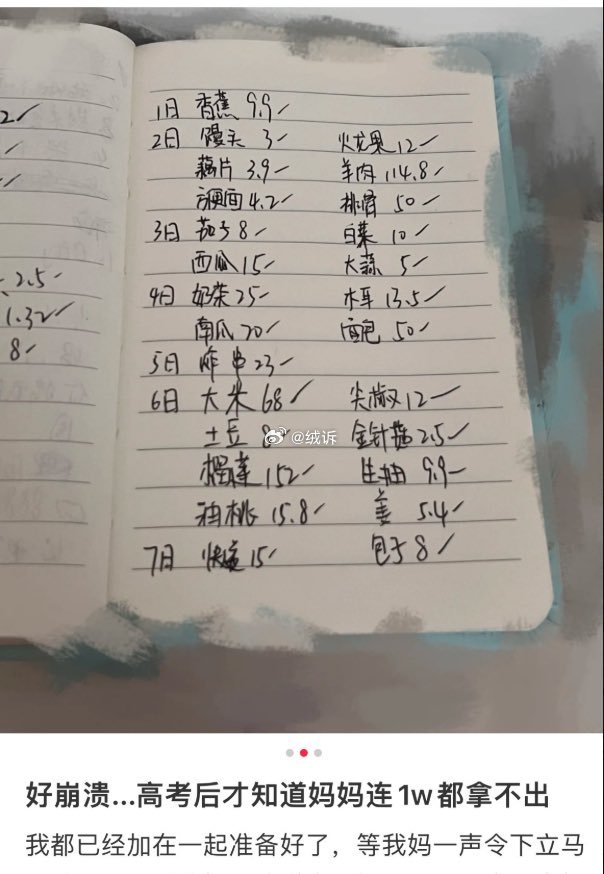 2✓
2.5✓
1.32✓
8✓
1日 香蕉 9.9✓
2日 馒头 3✓ 火龙果 12✓
藕片 3.9✓ 羊肉 114.8✓
方便面 4.2✓ 排骨 50✓
3日 茄子 8✓ 白菜 10✓
西瓜 15✓ 大蒜 5✓
4日 奶茶 25✓ 木耳 13.5✓
南瓜 20✓ 面包 50✓
5日 炸串 23✓
6日 大米 68✓ 尖椒 12✓
土豆 8✓ 金针菇 2.5✓
@绒诉
榴莲 152✓ 生抽 9.9✓
油桃 15.8✓ 姜 5.4✓
7日 快递 15✓ 包子 8✓
好崩溃...高考后才知道妈妈连1w都拿不出
我都已经加在一起准备好了，等我妈一声令下立马